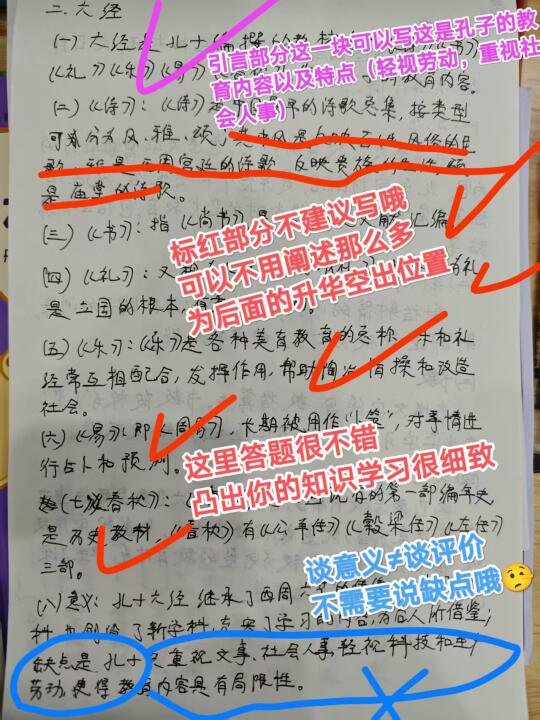 二.六经
(一)六经是孔子编撰的教
引言部分这一块可以写这是孔子的教
育内容以及特点(轻视劳动,重视社
会人事)
《礼》《乐》《易》
教育内容。
(二)《诗》:《诗》是
的诗歌总集,按类型
可分为风、雅、颂,
歌,雅是
宫廷的诗歌,反映贵族
颂
是庙堂的诗歌。
(三)《书》:指《尚书》
汇编
标红部分不建议写哦
可以不用阐述那么多
为后面的升华空出位置
(四)《礼》:又
礼
是立国的根本,
(五)《乐》:《乐》是各种美育教育的总称,乐和礼
经常互相配合,发挥作用,帮助陶冶情操和改造
社会。
(六)《易》:即《周易》,长期被用作卜筮,对事情进
行占卜和预测。
这里答题很不错
凸出你的知识学习很细致
(七)《春秋》:
的第一部编年史
是历史教材,《春秋》有《公羊传》《穀梁传》《左传》
三部。
谈意义≠谈评价
不需要说缺点哦
(八)意义:孔子六经继承了西周六艺的
科,也创设了新学科,充实了学习的内容,为后人所借鉴;
缺点是,孔子只重视文事、社会人事,轻视科技和生产
劳动,使得教育内容具有局限性。